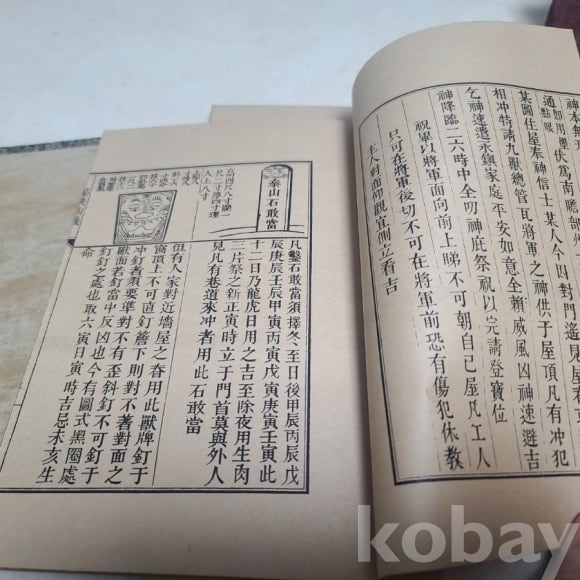 神本無
通點眼
某圖住屋奉神信士某人今因對門遙見
相冲特請九獸總管瓦將軍之神供于屋頂凡有冲犯
乞神速遣永鎮家庭平安如意全賴威風凶神速避吉
神降臨二六時中全叨神庇祭祝以完請登寶位
祝畢以將軍面向前上睇不可朝自己屋凡工人
只可在將軍後切不可在將軍前恐有傷犯休教
主人對面仰觀宜側立看吉
泰山石敢當
高四尺八寸闊一
尺二寸厚四寸埋
入土八寸
凡鑿石敢當須擇冬至日後甲辰丙辰戊
辰庚辰壬辰甲寅丙寅戊寅庚寅壬寅此
十二日乃龍虎日用之吉至除夜用生肉
三片祭之新正寅時立于門首莫與外人
見凡有巷道來冲者用此石敢當
但有人家對近墻屋之脊用此獸牌釘于
窩頂上不可直釘簷下則對不著對面之
冲釘者須要準對不有歪斜釘不可釘于
獸面若釘當中反凶也今有圖式黑圈處
釘釘之處也取六寅日寅時吉忌未亥生
命
kobay